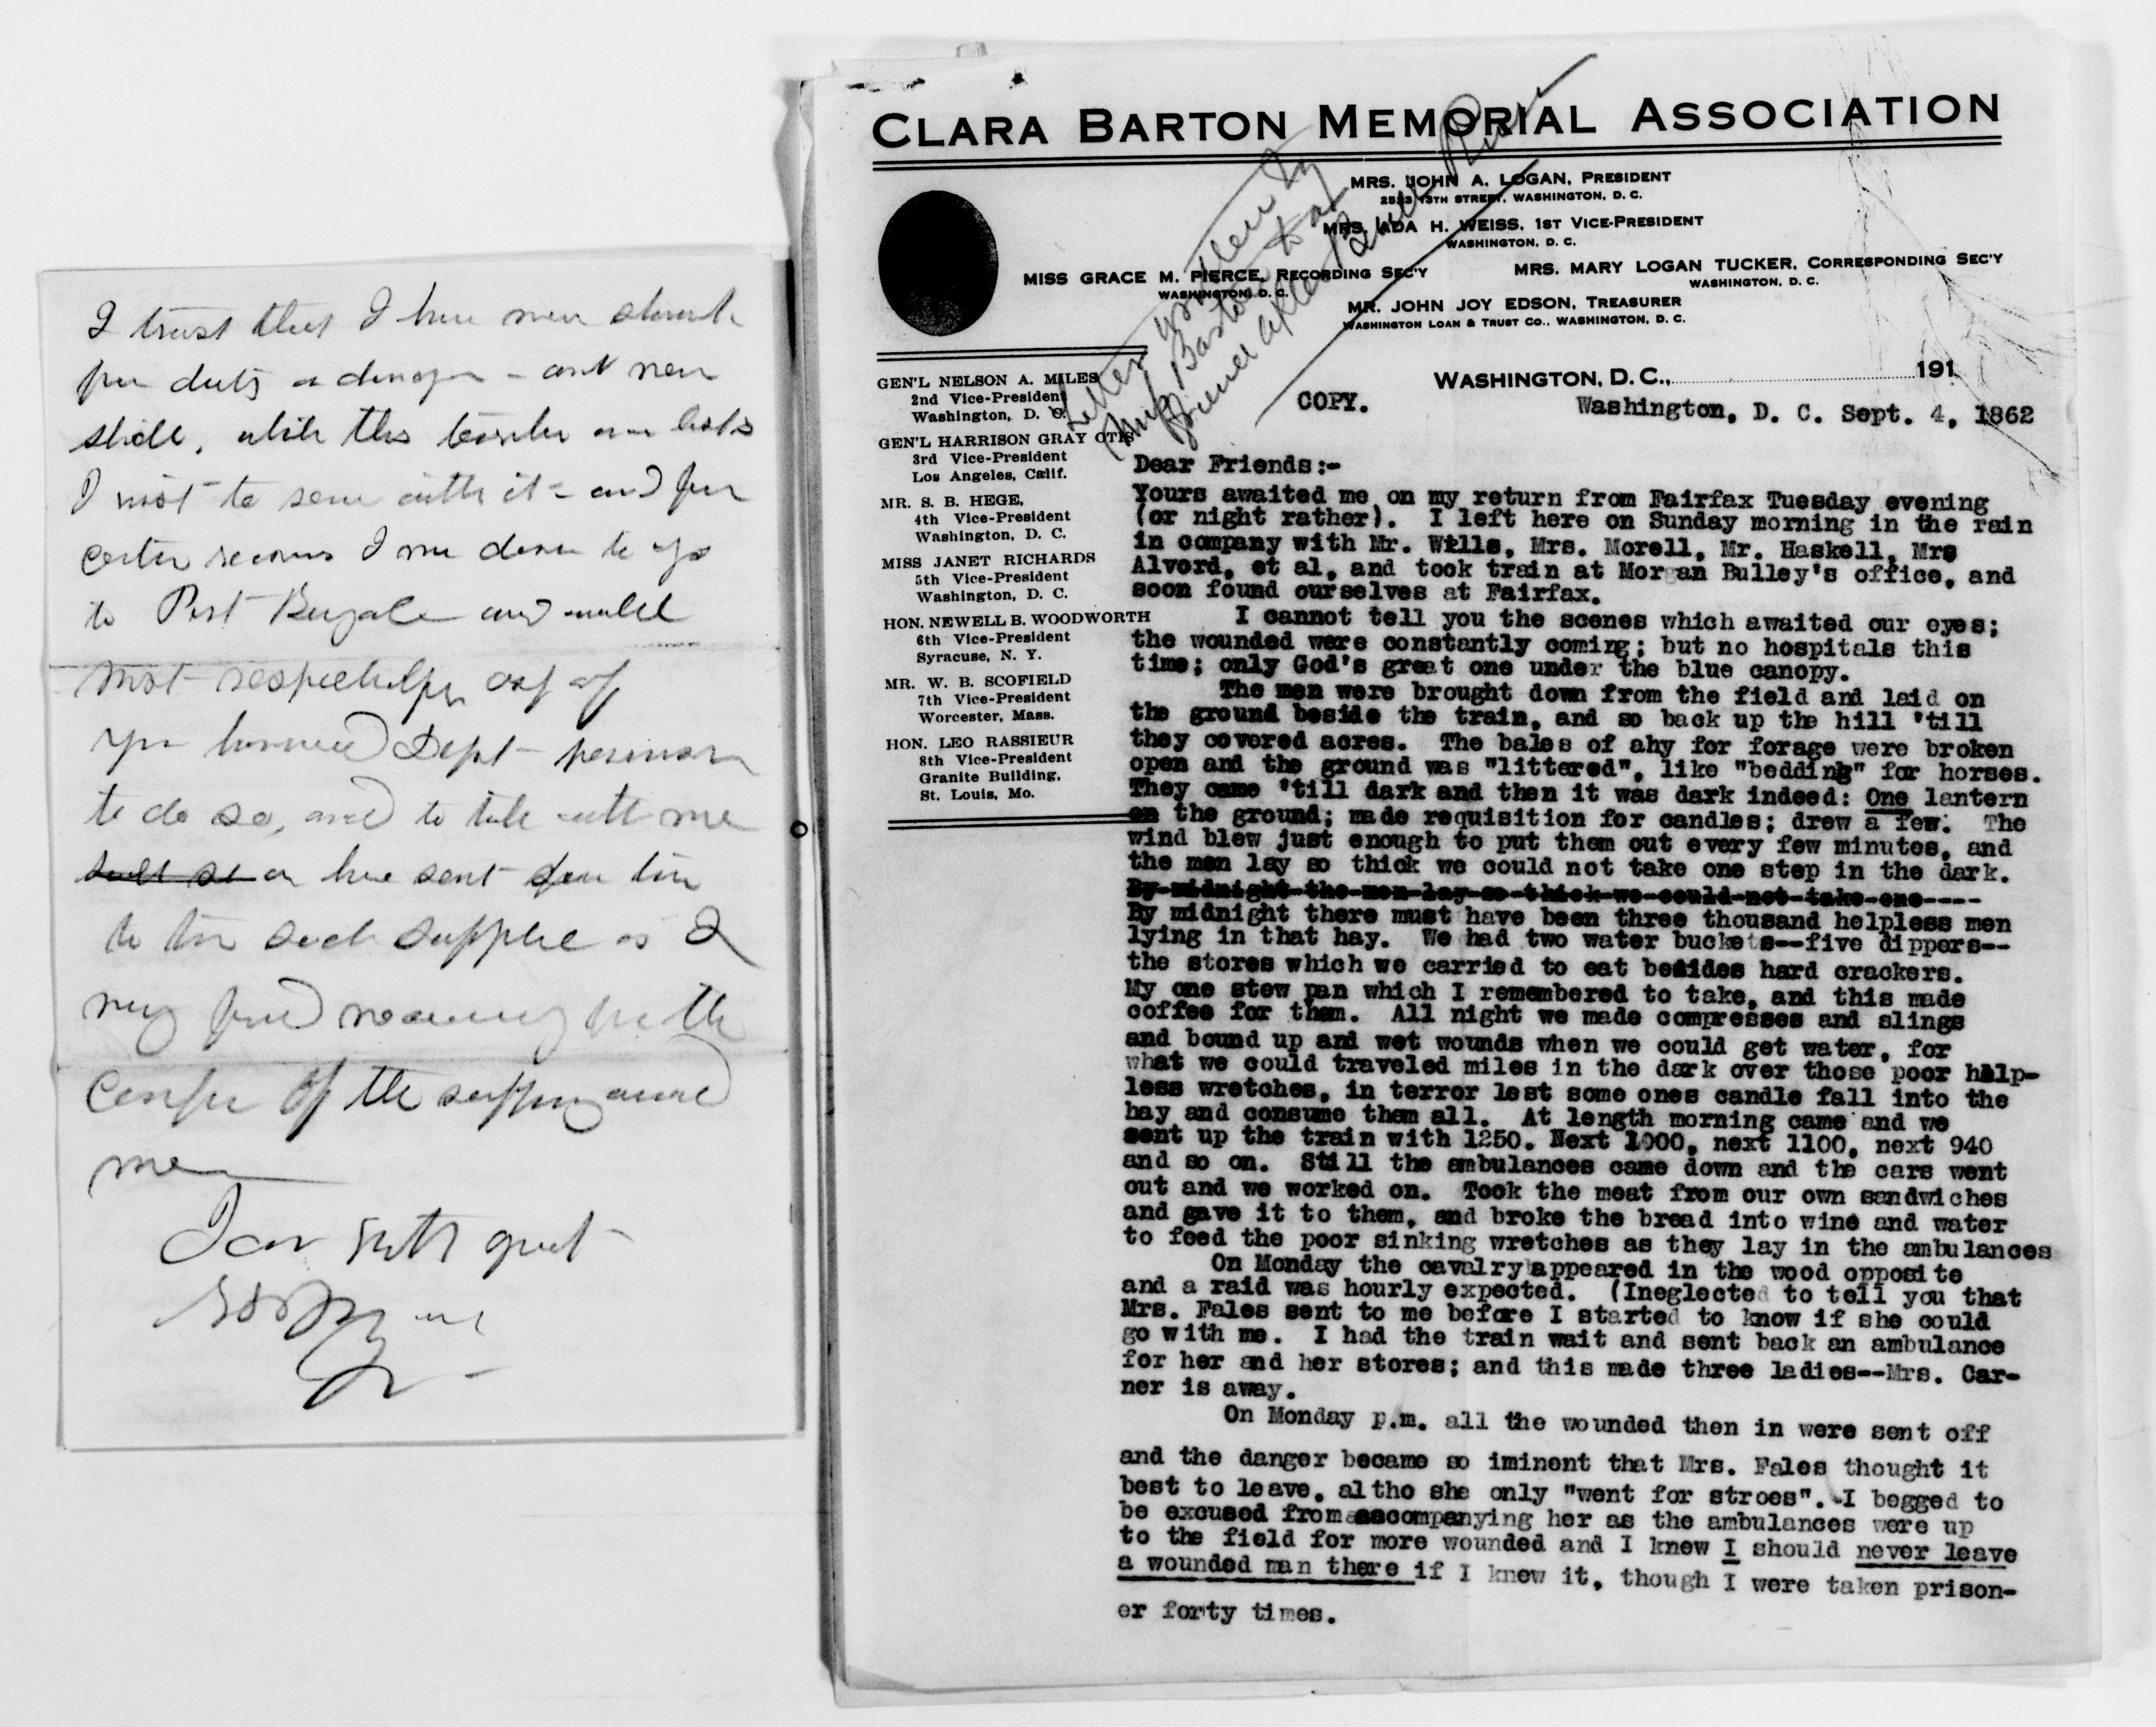 I trust that I have never shrunk
from duty or danger - and never
shall, while this terrible war lasts
I wish to serve with it - and for
certain reasons I now desire to go
to Port Royal and would
most respectfully ask of
your honored Dept - permission
to do so, and to take with me
or have sent from time
to time such supplies as I
may find necessary for the
comfort of the suffering
men
I am with great
CLARA BARTON MEMORIAL ASSOCIATION
MRS. JOHN A. LOGAN, PRESIDENT
13TH STREET, WASHINGTON, D. C.
MRS. ADA H. WEISS, 1ST VICE-PRESIDENT
WASHINGTON, D. C.
MISS GRACE M. PIERCE, RECORDING SEC'Y
WASHINGTON, D. C.
MRS. MARY LOGAN TUCKER, CORRESPONDING SEC'Y
WASHINGTON, D. C.
MR. JOHN JOY EDSON, TREASURER
WASHINGTON LOAN & TRUST CO., WASHINGTON, D. C.
Letter written by
Miss Barton to a
friend after Bull Run
GEN'L NELSON A. MILES
2nd Vice-President
Washington, D. C.
GEN'L HARRISON GRAY OTIS
3rd Vice-President
Los Angeles, Calif.
MR. S. B. HEGE,
4th Vice-President
Washington, D. C.
MISS JANET RICHARDS
5th Vice-President
Washington, D. C.
HON. NEWELL B. WOODWORTH
6th Vice-President
Syracuse, N. Y.
MR. W. B. SCOFIELD
7th Vice-President
Worcester, Mass.
HON. LEO RASSIEUR
8th Vice-President
Granite Building,
St. Louis, Mo.
WASHINGTON, D. C., 191
COPY.
Washington, D. C. Sept. 4, 1862
Dear Friends:-
Yours awaited me on my return from Fairfax Tuesday evening
(or night rather). I left here on Sunday morning in the rain
in company with Mr. Wells, Mrs. Morell, Mr. Haskell, Mrs
Alvord, et al, and took train at Morgan Bulley's office, and
soon found ourselves at Fairfax.
I cannot tell you the scenes which awaited our eyes;
the wounded were constantly coming; but no hospitals this
time; only God's great one under the blue canopy.
The men were brought down from the field and laid on
the ground beside the train, and so back up the hill 'till
they covered acres. The bales of ahy for forage were broken
open and the ground was "littered", like "bedding" for horses.
They came 'till dark and then it was dark indeed: One lantern
on the ground; made requisition for candles; drew a few. The
wind blew just enough to put them out every few minutes, and
the men lay so thick we could not take one step in the dark.
By-midnight-the-men-lay-so-thick-we-could-not-take-one----
By midnight there must have been three thousand helpless men
lying in that hay. We had two water buckets--five dippers--
the stores which we carried to eat besides hard crackers.
My one stew pan which I remembered to take, and this made
coffee for them. All night we made compresses and slings
and bound up and wet wounds when we could get water, for
what we could traveled miles in the dark over those poor help-
less wretches, in terror lest some ones candle fall into the
hay and consume them all. At length morning came and we
sent up the train with 1250. Next 1000, next 1100, next 940
and so on. Still the ambulances came down and the cars went
out and we worked on. Took the meat from our own sandwiches
and gave it to them, and broke the bread into wine and water
to feed the poor sinking wretches as they lay in the ambulances
On Monday the cavalry appeared in the wood opposite
and a raid was hourly expected. (Ineglected to tell you that
Mrs. Fales sent to me before I started to know if she could
go with me. I had the train wait and sent back an ambulance
for her and her stores; and this made three ladies--Mrs. Car-
ner is away.
On Monday p.m. all the wounded then in were sent off
and the danger became so iminent that Mrs. Fales thought it
best to leave, altho she only "went for stroes". I begged to
be excused from accompanying her as the ambulances were up
to the field for more wounded and I knew I should never leave
a wounded man there if I knew it, though I were taken prison-
er forty times.